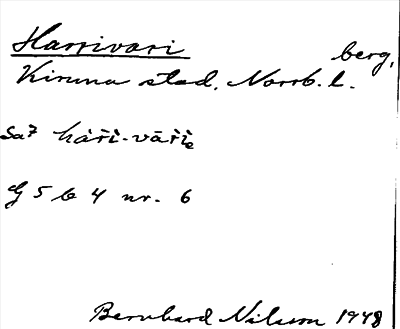 Harrivari berg,
Kiruna stad, Norrb. l.
Sa7 hàři-vāři
G 5 b 4 nr. 6
Bernhard Nilsson 1948